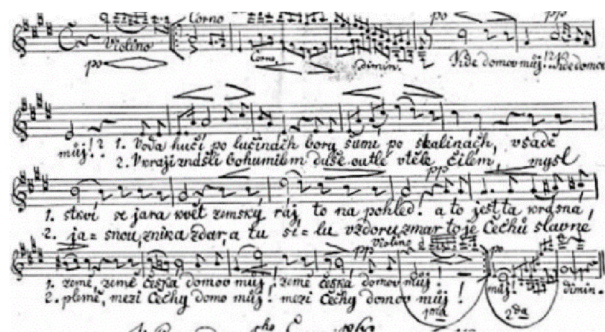 po Corno po pp
Violino
po Corno Dimin. Kde domov můj! Kde domov
můj!? 1. Voda hučí po lučinách bory šumí po skalinách, v sadě
2. V kraji znášli bohumilém duše outlé v těle čilém, mysl
pp
1. stkví se jara květ zemský ráj to na pohled! a to jest ta krásná,
2. ja=snou, znik a zdar, a tu sí=lu vzdoru zmar to je Čechů slavné
Violino
1. země, země česká domov můj, země česká domov můj! můj! dimin.
2. plémě, mezi Čechy domov můj! mezi Čechy domov můj!